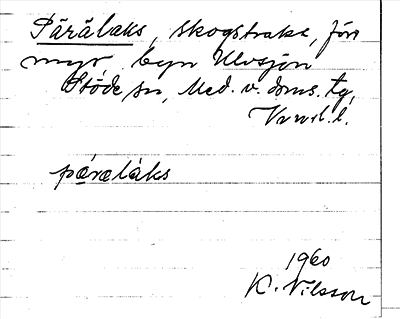 Pärälaks, skogstrakt, förr
myr, byn Ulvsjön
Stöde sn, Med. v. doms. tg,
Vnrl. l.
päralàks
1960
K. Nilsson